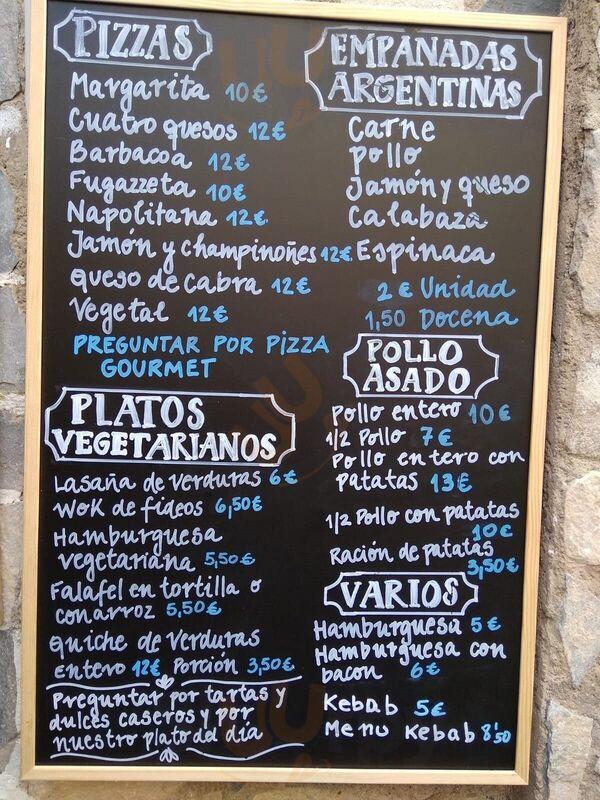 PIZZAS
Margarita 10€
Cuatro quesos 12€
Barbacoa 12€
Fugazzeta 10€
Napolitana 12€
Jamón y champinoñes 12€
queso de cabra 12€
Vegetal 12€
PREGUNTAR POR PIZZA
GOURMET
PLATOS
VEGETARIANOS
Lasaña de verduras 6€
Wok de fideos 6,50€
Hamburguesa
vegetariana 5,50€
Falafel en tortilla o
con arroz 5,50€
Quiche de verduras
Entero 12€ Porción 3,50€
Preguntar por tartas y
dulces caseros y por
nuestro plato del día
EMPANADAS
ARGENTINAS
Carne
pollo
Jamón y queso
Calabaza
Espinaca
2 € Unidad
1,50 Docena
POLLO
ASADO
Pollo entero 10€
1/2 Pollo 7€
Pollo entero con
patatas 13€
1/2 Pollo con patatas
10€
Ración de patatas
3,50€
VARIOS
Hamburguesa 5€
Hamburguesa con
bacon 6€
Kebab 5€
Menu Kebab 8'50